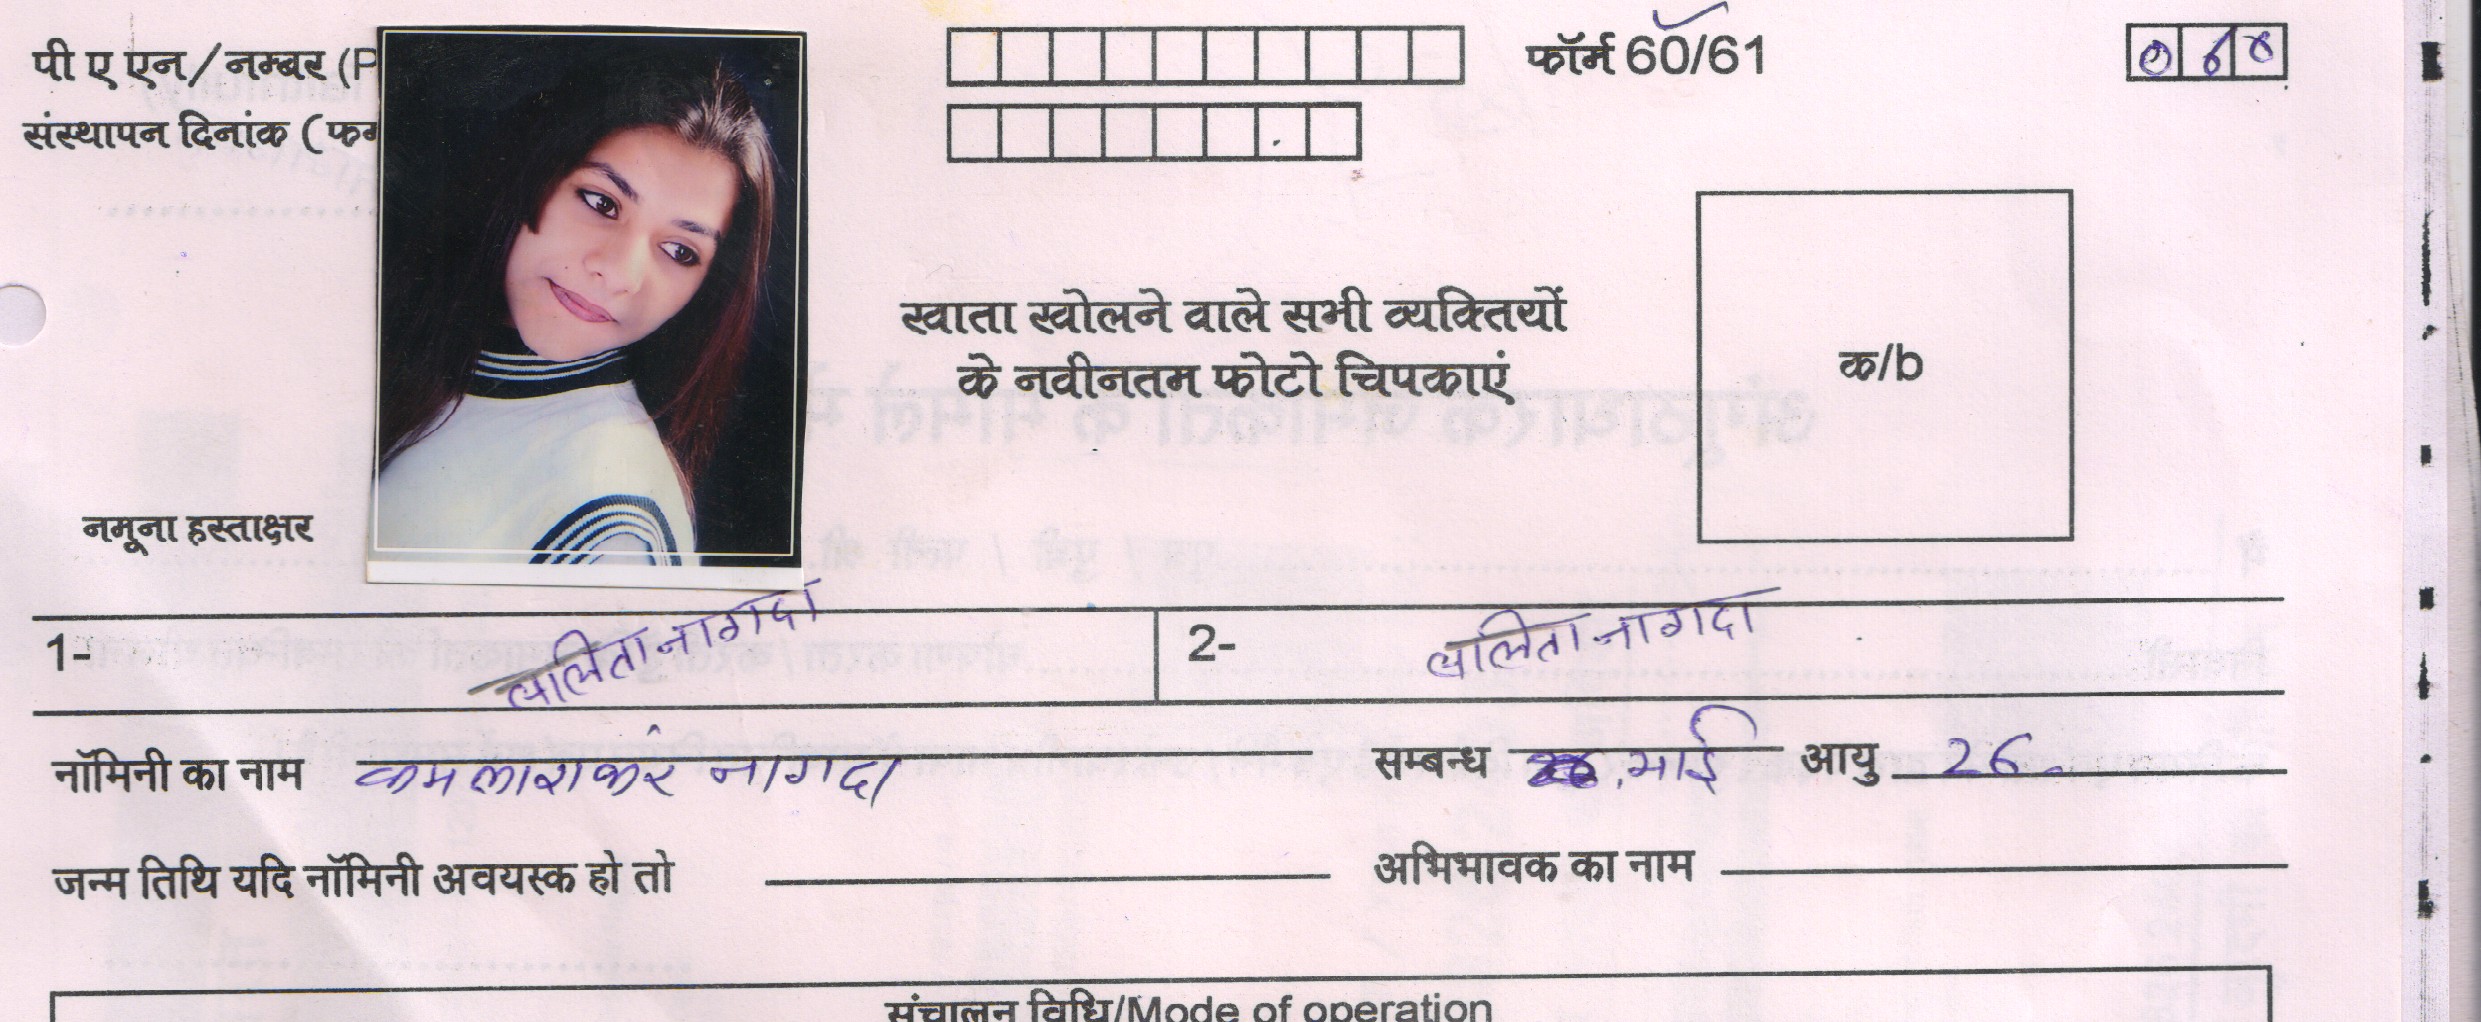 पी ए एन/नम्बर (P
फॉर्म 60/61
संस्थापन दिनांक (फर्म
खाता खोलने वाले सभी व्यक्तियों
के नवीनतम फोटो चिपकाएं
क/b
नमूना हस्ताक्षर
1- ललिता नागदा 2- ललिता नागदा
नॉमिनी का नाम कमलाशंकर नागदा सम्बन्ध भाई आयु 26
जन्म तिथि यदि नॉमिनी अवयस्क हो तो अभिभावक का नाम
संचालन विधि/Mode of operation